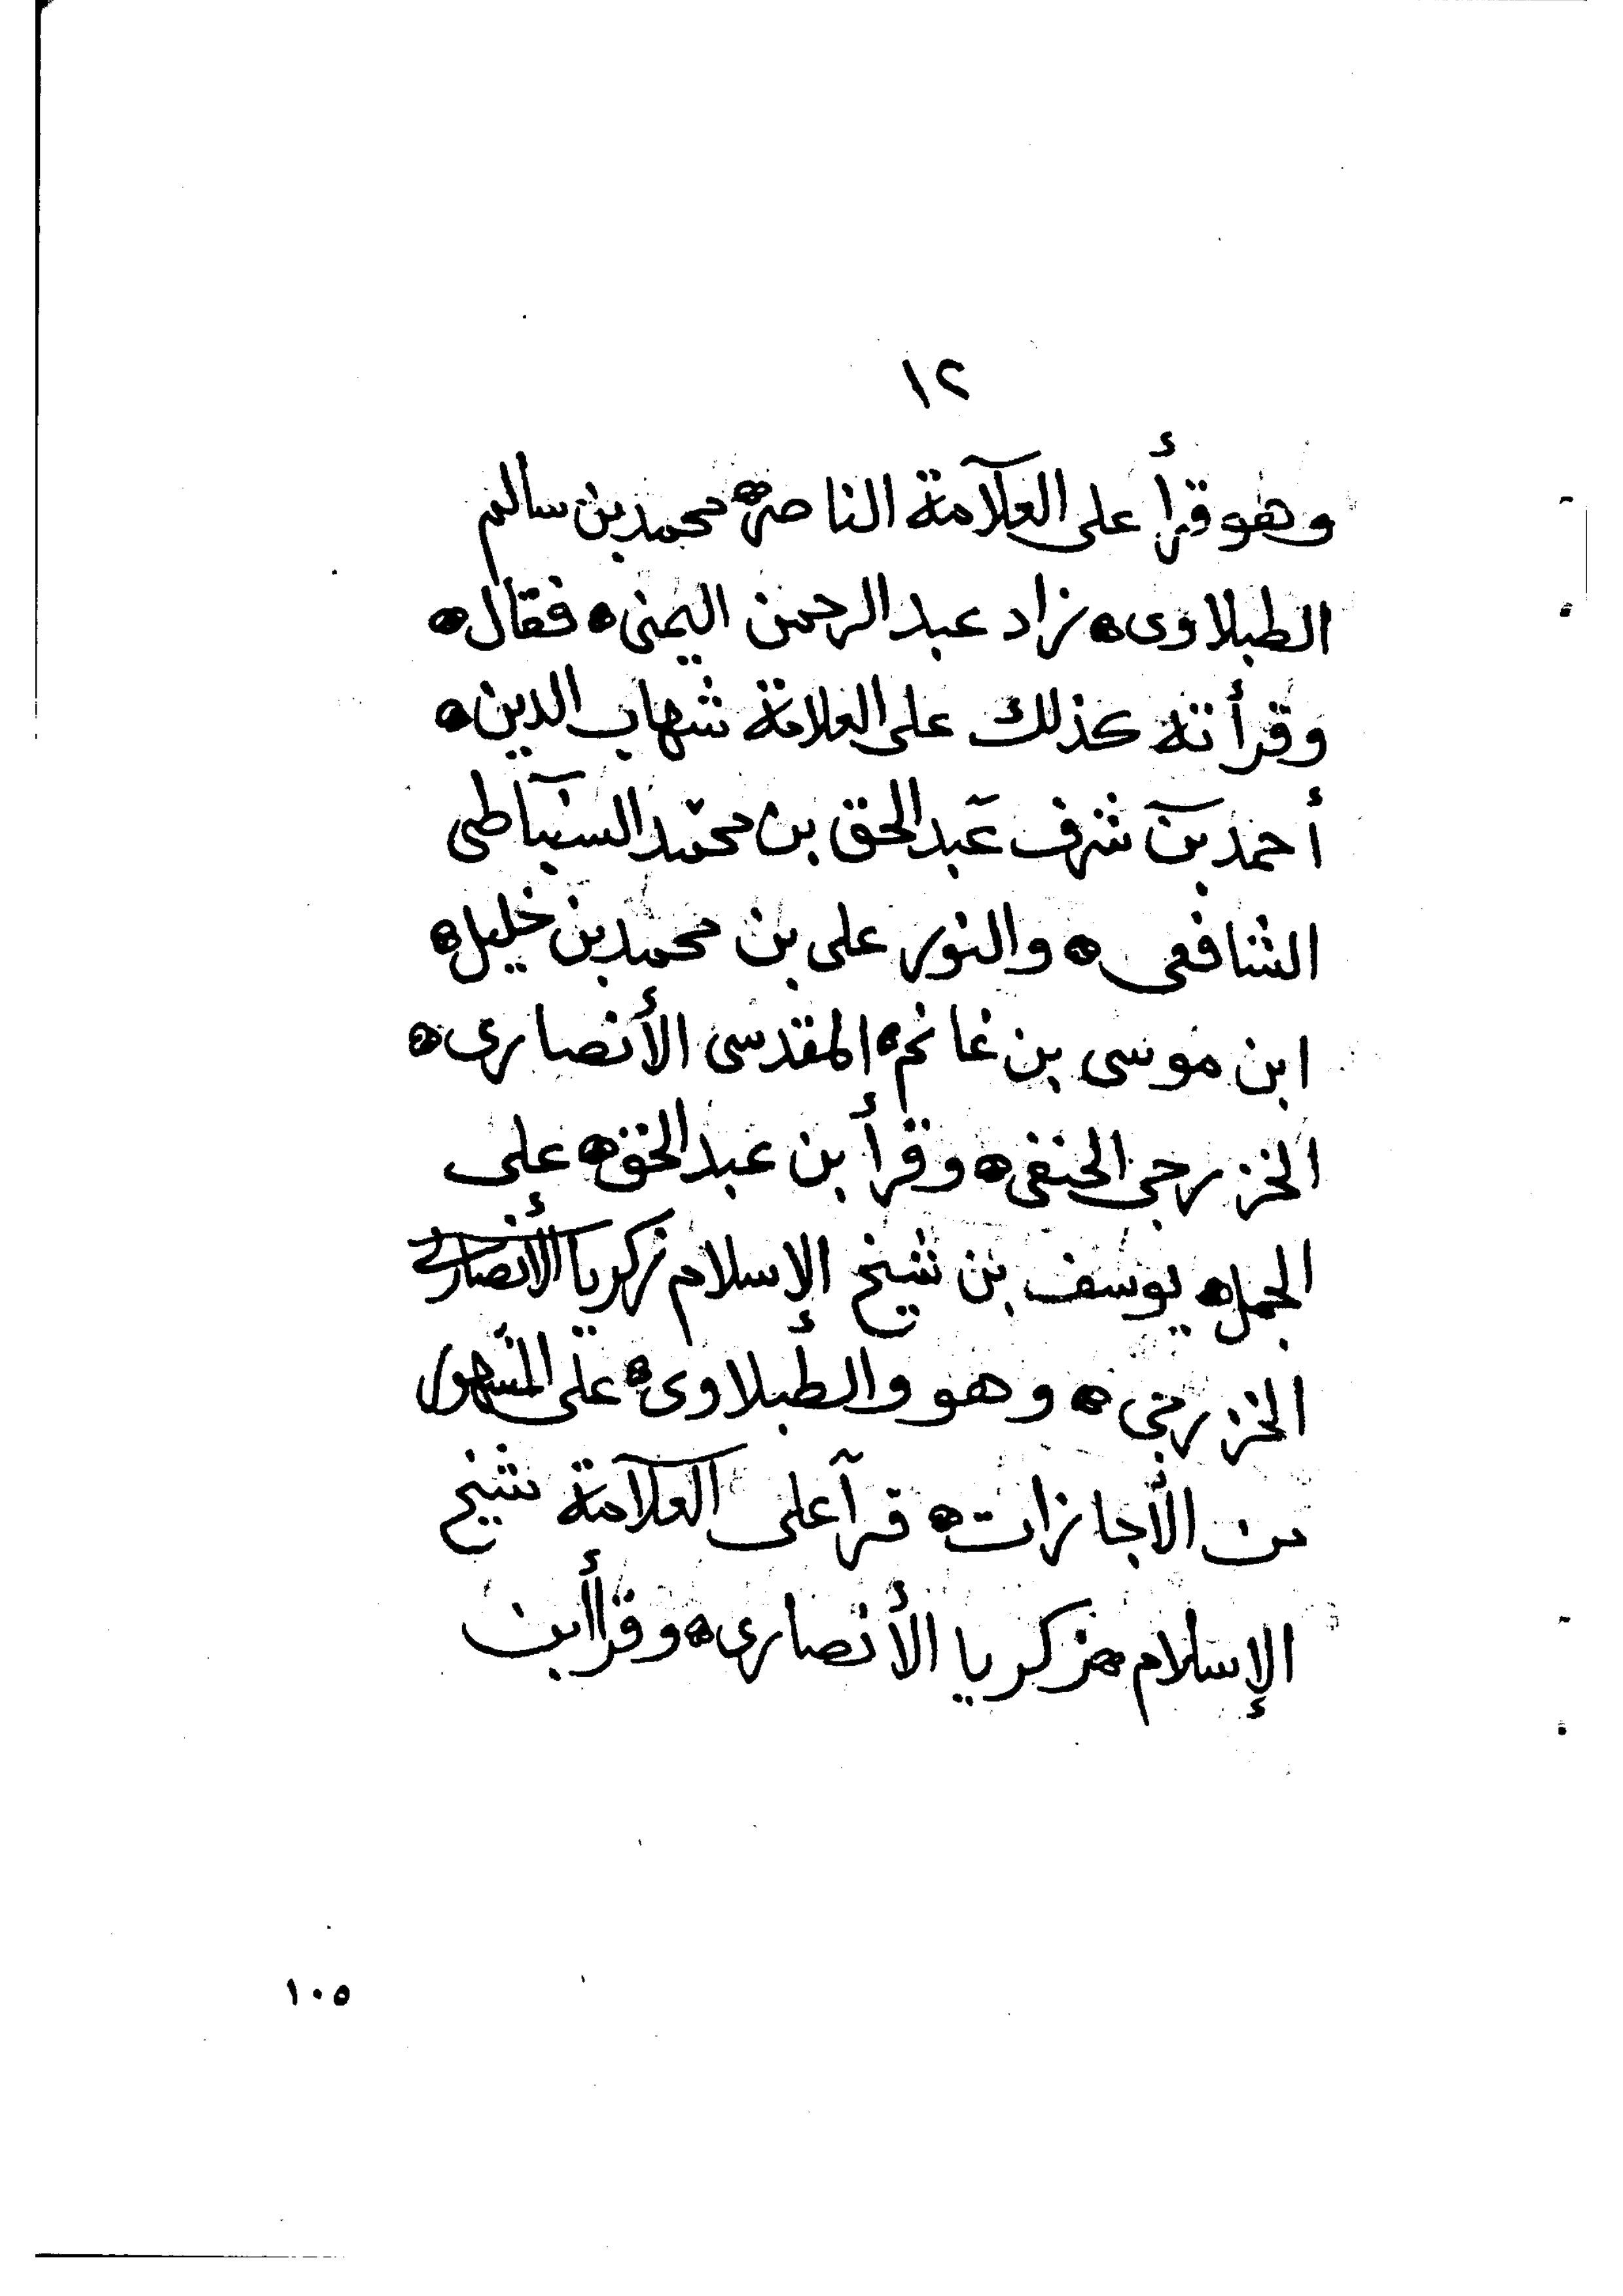 ١٢
وهو قرأ على العلآمة الناصر ه محمد بن سالم
الطبلاوى ه زاد عبد الرحمن اليمنى ه فقال ه
وقرأته كذلك على العلامة شهاب الدين ه
أحمد بن شرف عبد الحق بن محمد السنباطى
الشافعى ه والنور على بن محمد بن خليل ه
ابن موسى بن غانم ه المقدسى الأنصارى ه
الخزرجى الحنفى ه وقرأ بن عبد الحق ه على
الجمل ه يوسف بن شيخ الإسلام زكريا الأنصارى
الخزرجى ه وهو والطبلاوى ه على المشهور
من الأجازات ه قرآ على العلآمة شيخ
الإسلام ه زكريا الأنصارى ه وقرأ ابن
١٠٥